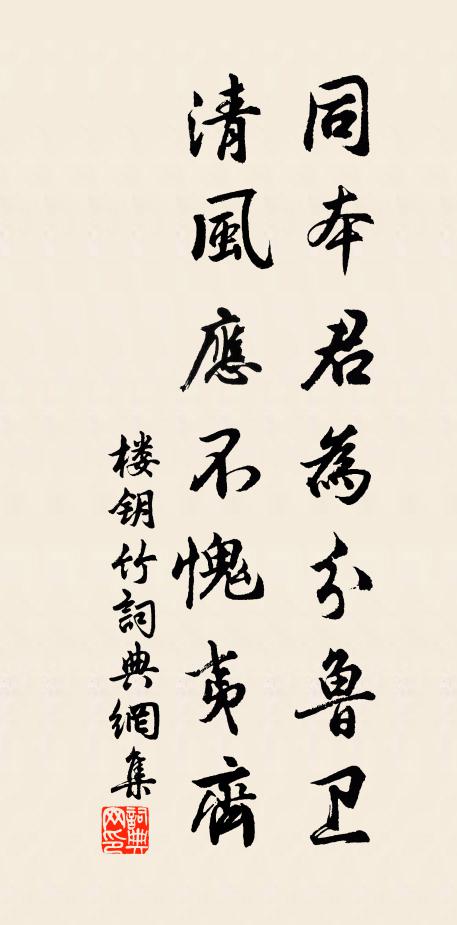 同本君為分魯卫
清風應不愧夷齊
楼钥竹詞典網集
詞典网印